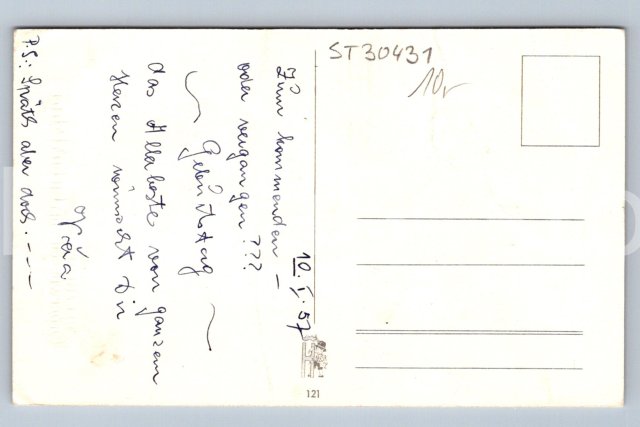 ST30431
10,-
10. I. 57
Zum kommenden –
oder vergangen ???
~ Geburtstag ~
das Allerbeste von ganzem
Herzen wünscht Dir
Věra
P.S.: Spät aber doch. - - -
121